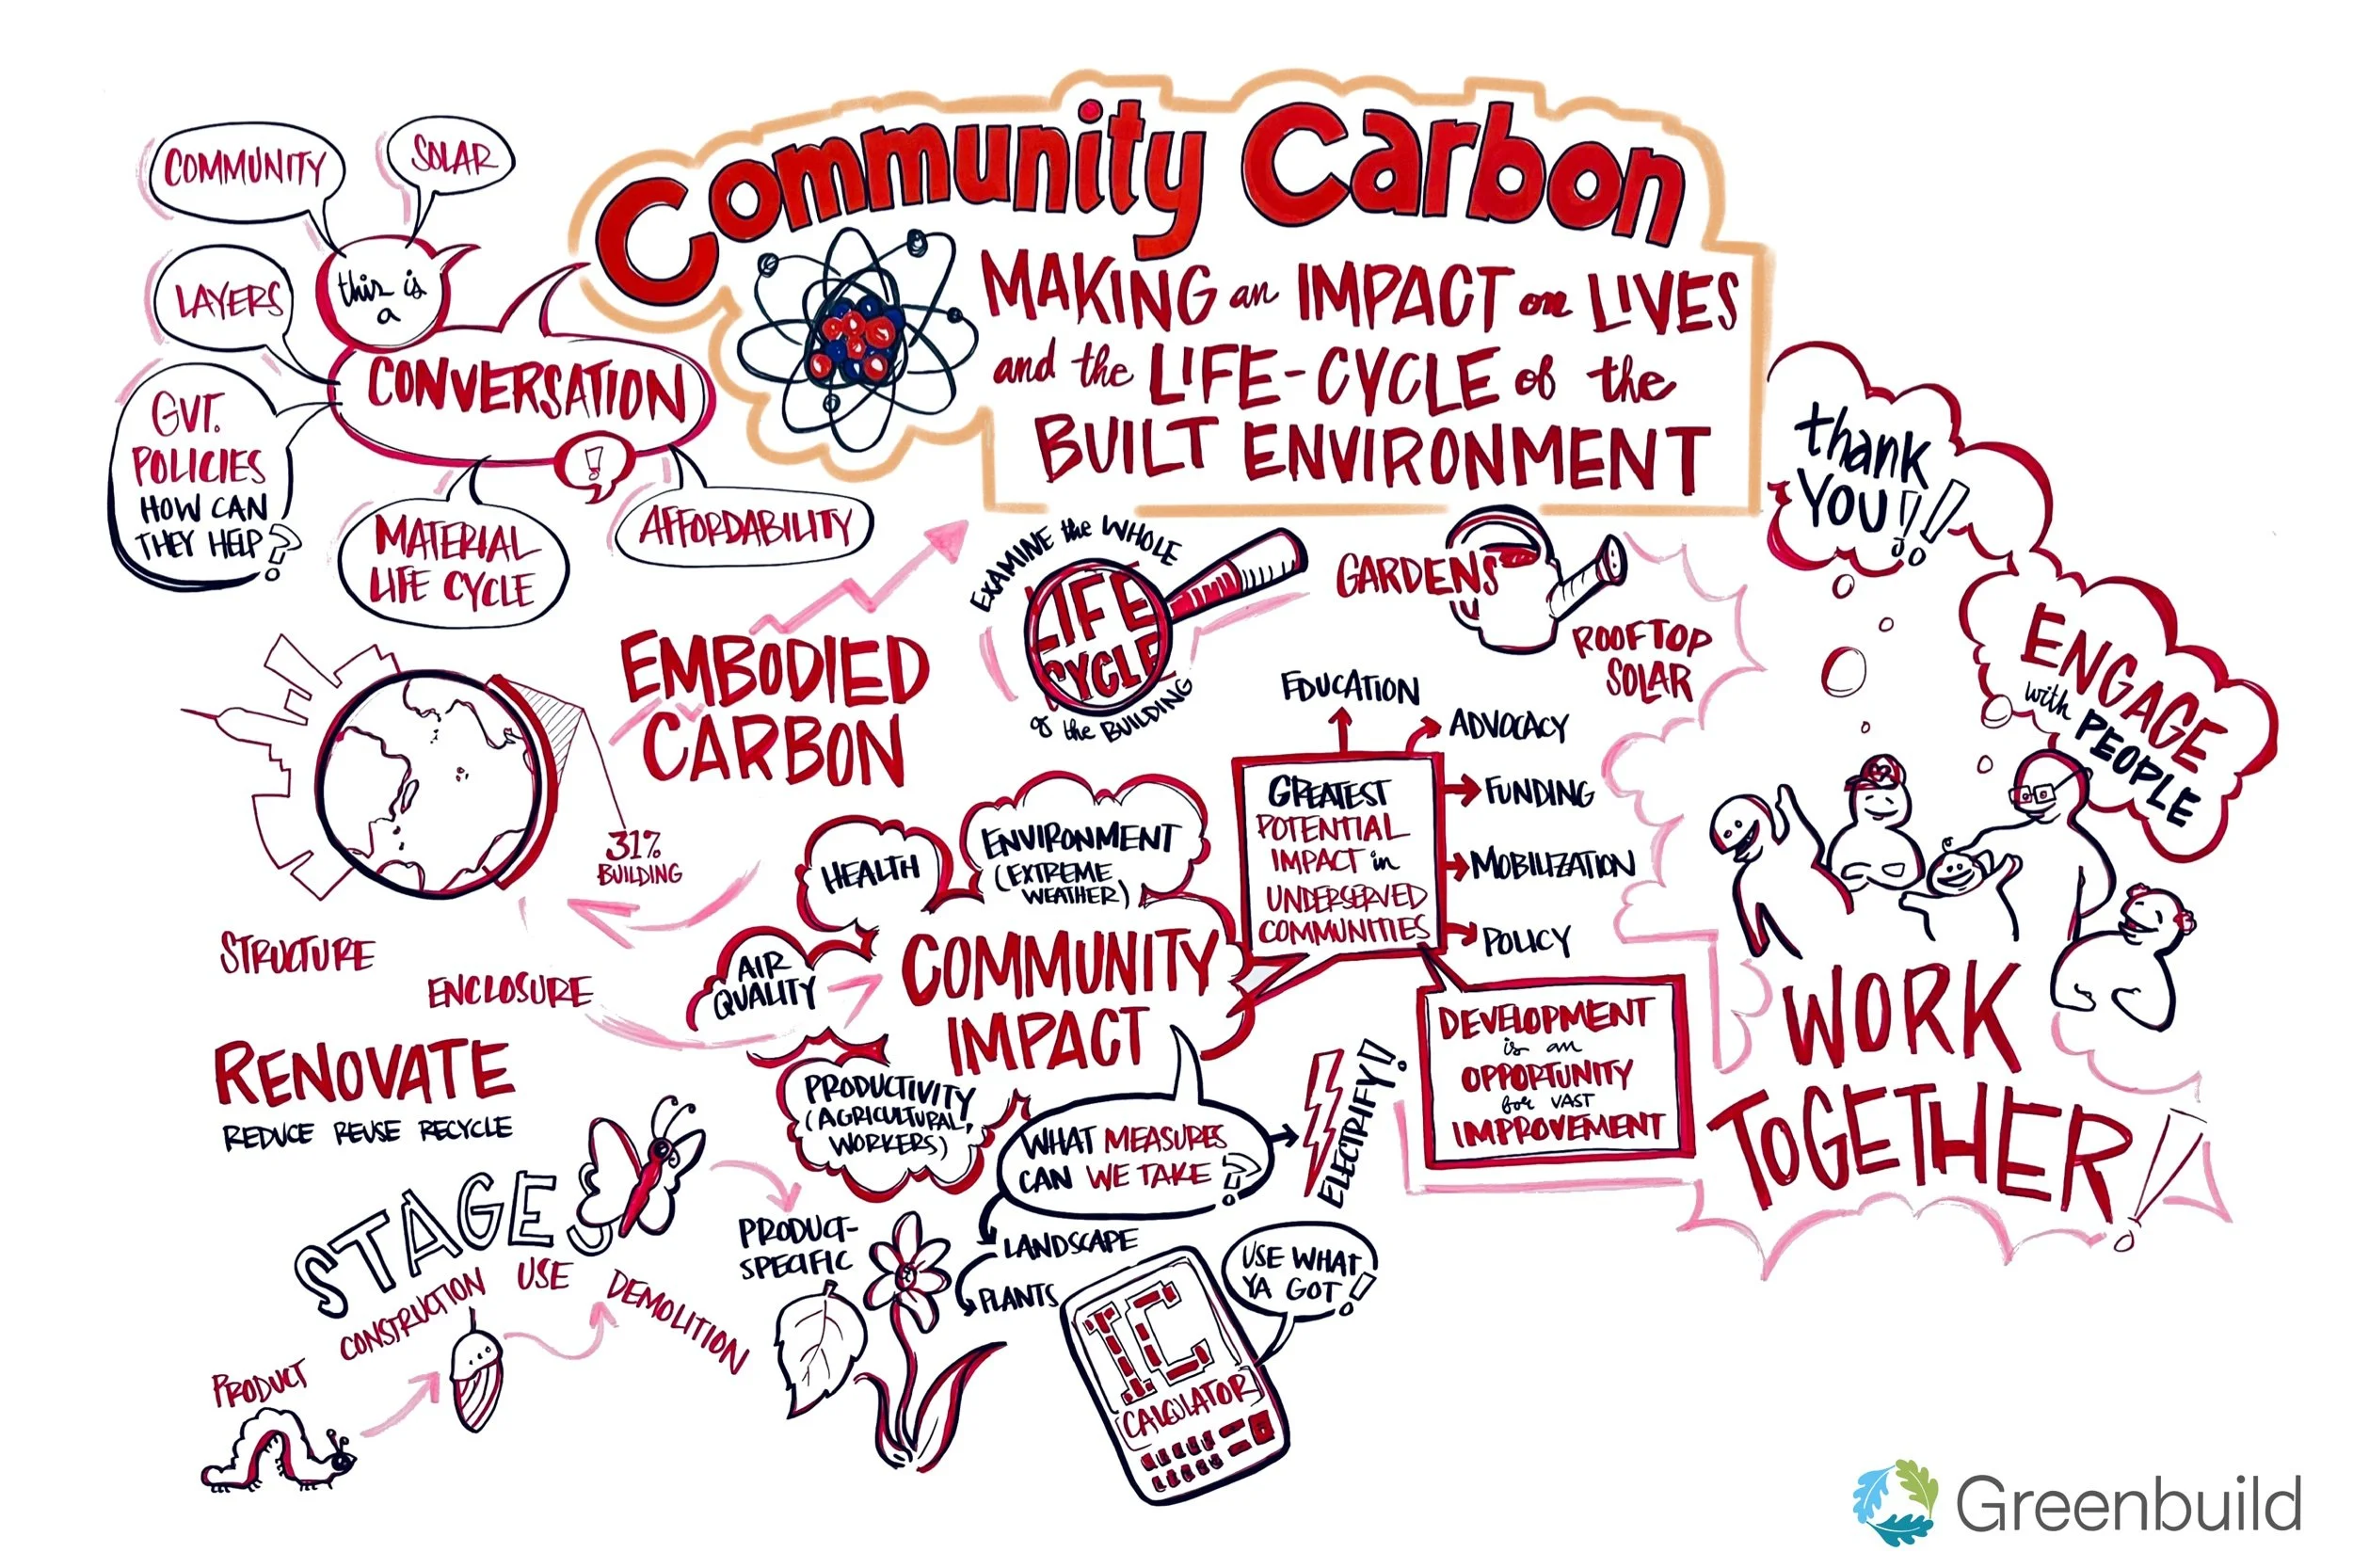 Community Carbon
MAKING an IMPACT on LIVES
and the LIFE-CYCLE of the
BUILT ENVIRONMENT
COMMUNITY
SOLAR
this is
a
CONVERSATION
!
LAYERS
GVT.
POLICIES
HOW CAN
THEY HELP?
MATERIAL
LIFE CYCLE
AFFORDABILITY
EMBODIED
CARBON
31%
BUILDING
STRUCTURE
ENCLOSURE
RENOVATE
REDUCE REUSE RECYCLE
STAGES
PRODUCT
CONSTRUCTION
USE
DEMOLITION
PRODUCT-
SPECIFIC
EXAMINE the WHOLE
LIFE
CYCLE
of the BUILDING
GARDENS
ROOFTOP
SOLAR
HEALTH
ENVIRONMENT
(EXTREME
WEATHER)
AIR
QUALITY
COMMUNITY
IMPACT
PRODUCTIVITY
(AGRICULTURAL,
WORKERS)
WHAT MEASURES
CAN WE TAKE?
ELECTRIFY!
LANDSCAPE
PLANTS
IC
CALCULATOR
USE WHAT
YA GOT!
GREATEST
POTENTIAL
IMPACT in
UNDERSERVED
COMMUNITIES
EDUCATION
ADVOCACY
FUNDING
MOBILIZATION
POLICY
DEVELOPMENT
is an
OPPORTUNITY
for VAST
IMPROVEMENT
thank
YOU!!
ENGAGE
with PEOPLE
WORK
TOGETHER!
Greenbuild